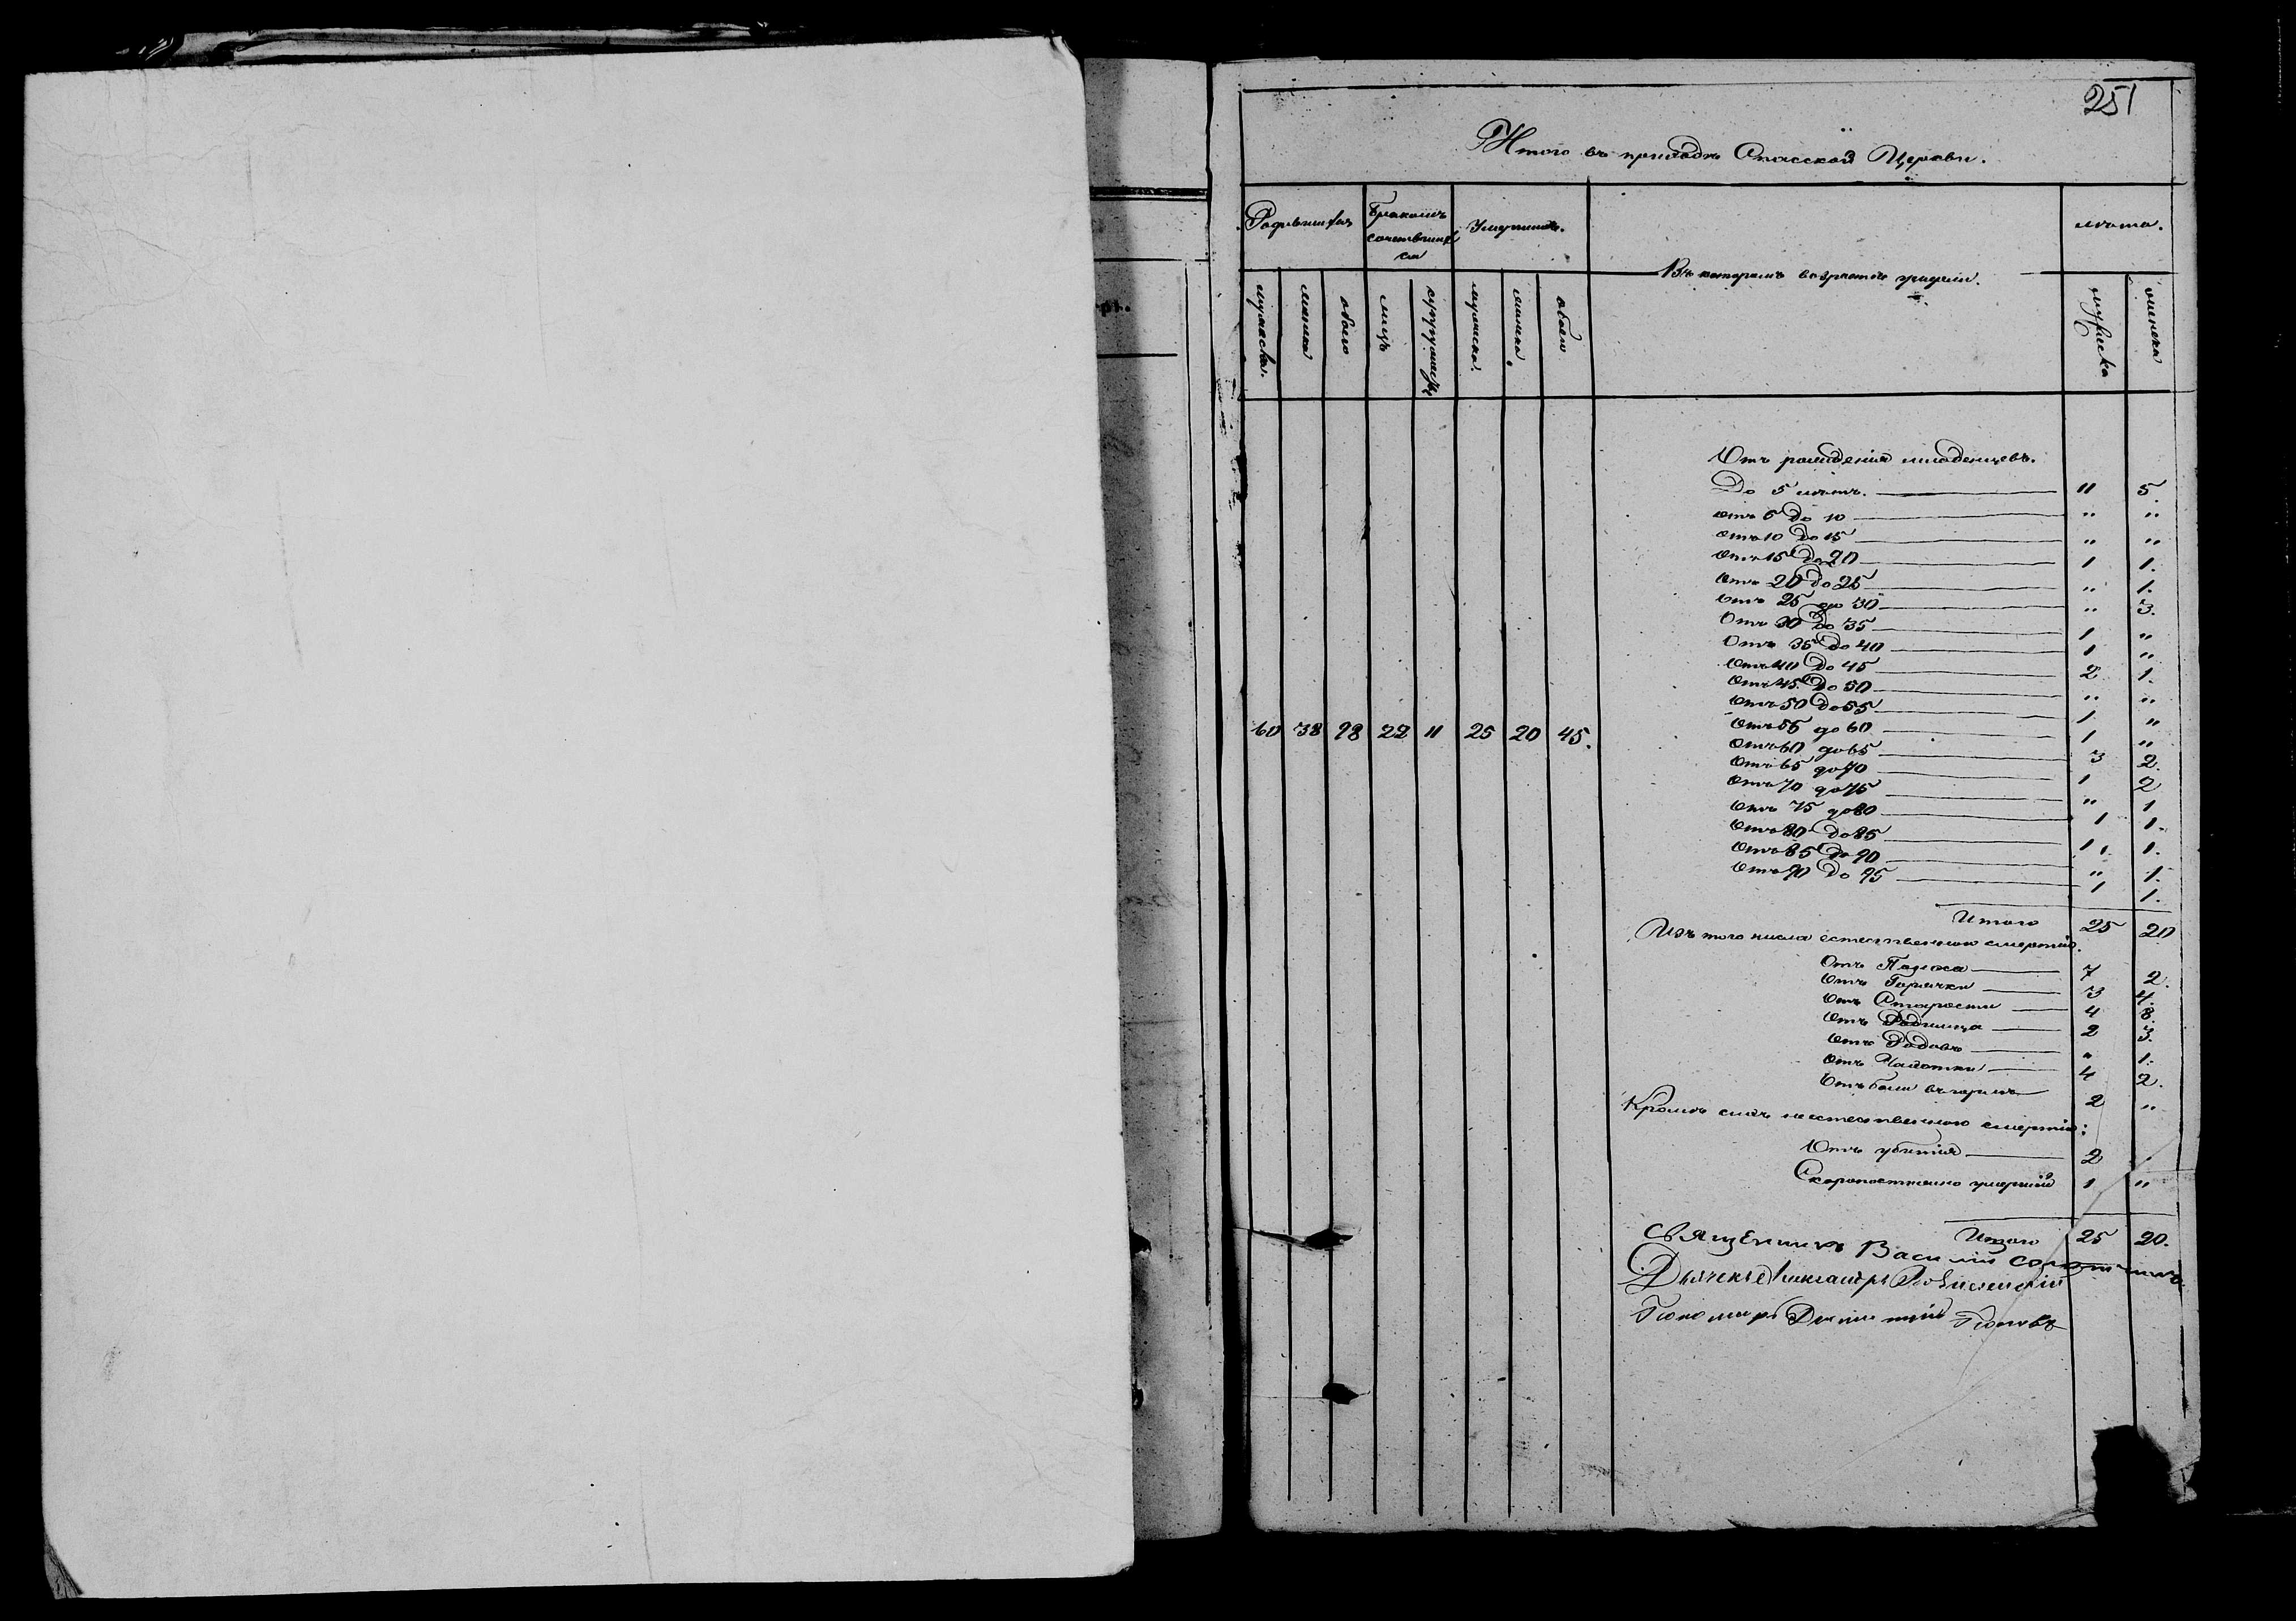 251
Итого въ приходѣ Спасской Церкви.
Родившихся
Бракомъ сочетавшихся
Умершихъ.
Въ которомъ возрастѣ умерли.
лѣта.
мужеска.
женска
обоего
лицъ
супружествъ
мужеска.
женска.
обоего
мужеска
женска
Отъ рожденія младенцевъ.
До 5 лѣтъ. 11 5.
отъ 5 до 10 " "
отъ 10 до 15 " "
отъ 15 до 20 1 1.
отъ 20 до 25 " 1.
отъ 25 до 30 " 3.
Отъ 30 до 35 1 "
Отъ 35 до 40 1 "
Отъ 40 до 45 2 1.
Отъ 45 до 50 " "
Отъ 50 до 55 1 "
Отъ 55 до 60 1 "
60 38 98 22 11 25 20 45.
Отъ 60 до 65 3 2.
Отъ 65 до 70 1 2
Отъ 70 до 75 " 1
Отъ 75 до 80 1 1.
Отъ 80 до 85 1 1.
Отъ 85 до 90 " 1.
Отъ 90 до 95 1 1.
Итого 25 20
Изъ того числа естественною смертію.
Отъ Поноса 7 2.
Отъ Горячки 3 4.
Отъ Старости 4 8.
Отъ Родимца 2 3.
Отъ Родовъ " 1.
Отъ Чахотки 4 2.
Отъ боли въ горлѣ 2 "
Кромѣ сихъ неестественною смертію:
Отъ убитія 2
Скоропостижно умершій 1 "
Итого 25 20.
Священникъ Василій
Дьячекъ Александръ
Пономарь Димитрій Поповъ